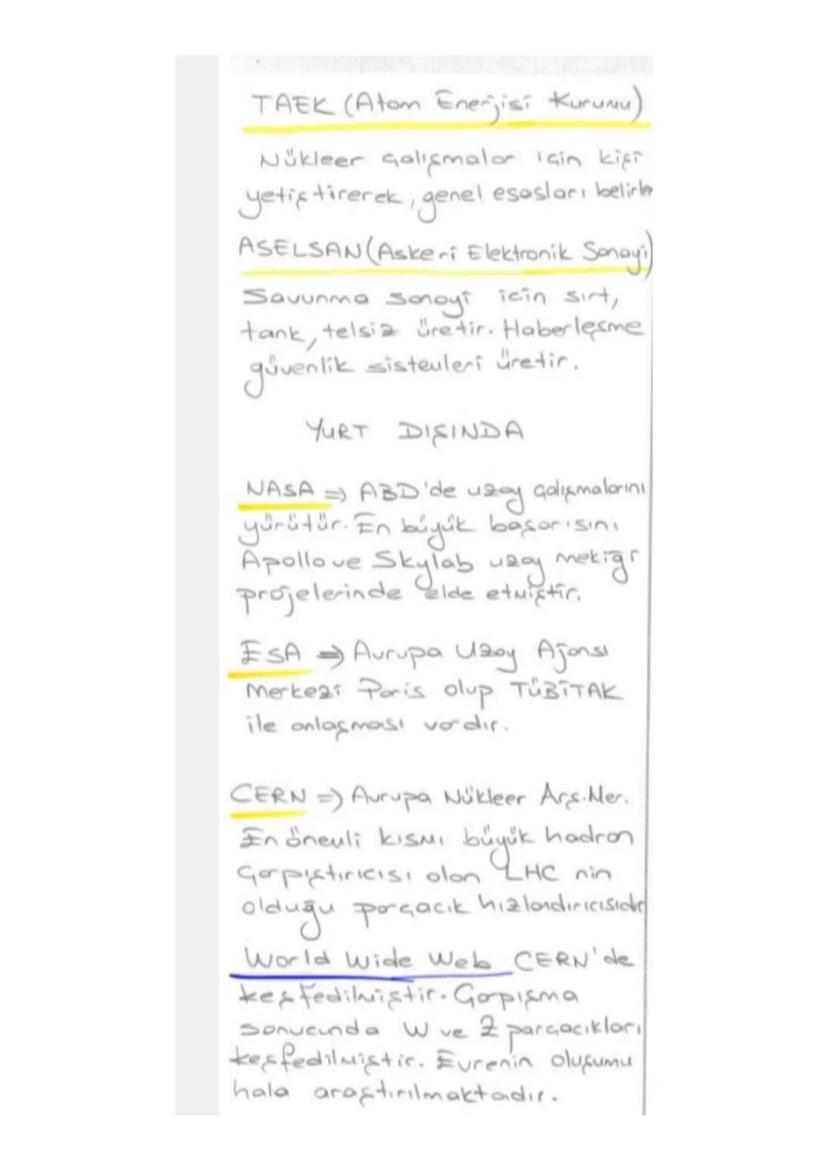 TAEK (Atom Enerjisi Kurumu)
Nükleer çalışmalar için kişi
yetiştirerek, genel esasları belirler
ASELSAN (Askeri Elektronik Sanayi)
Savunma sanayi için sırt,
tank, telsiz üretir. Haberleşme
güvenlik sistemleri üretir.
YURT DIŞINDA
NASA => ABD'de uzay çalışmalarını
yürütür. En büyük başarısını
Apollo ve Skylab uzay mekiği
projelerinde elde etmiştir.
ESA => Avrupa Uzay Ajansı
Merkezi Paris olup TÜBİTAK
ile anlaşması vardır.
CERN => Avrupa Nükleer Arş. Mer.
En önemli kısmı büyük hadron
Çarpıştırıcısı olan LHC nin
olduğu parçacık hızlandırıcısıdır
World Wide Web CERN'de
keşfedilmiştir. Çarpışma
sonucunda W ve Z parçacıkları
keşfedilmiştir. Evrenin oluşumu
hala araştırılmaktadır.